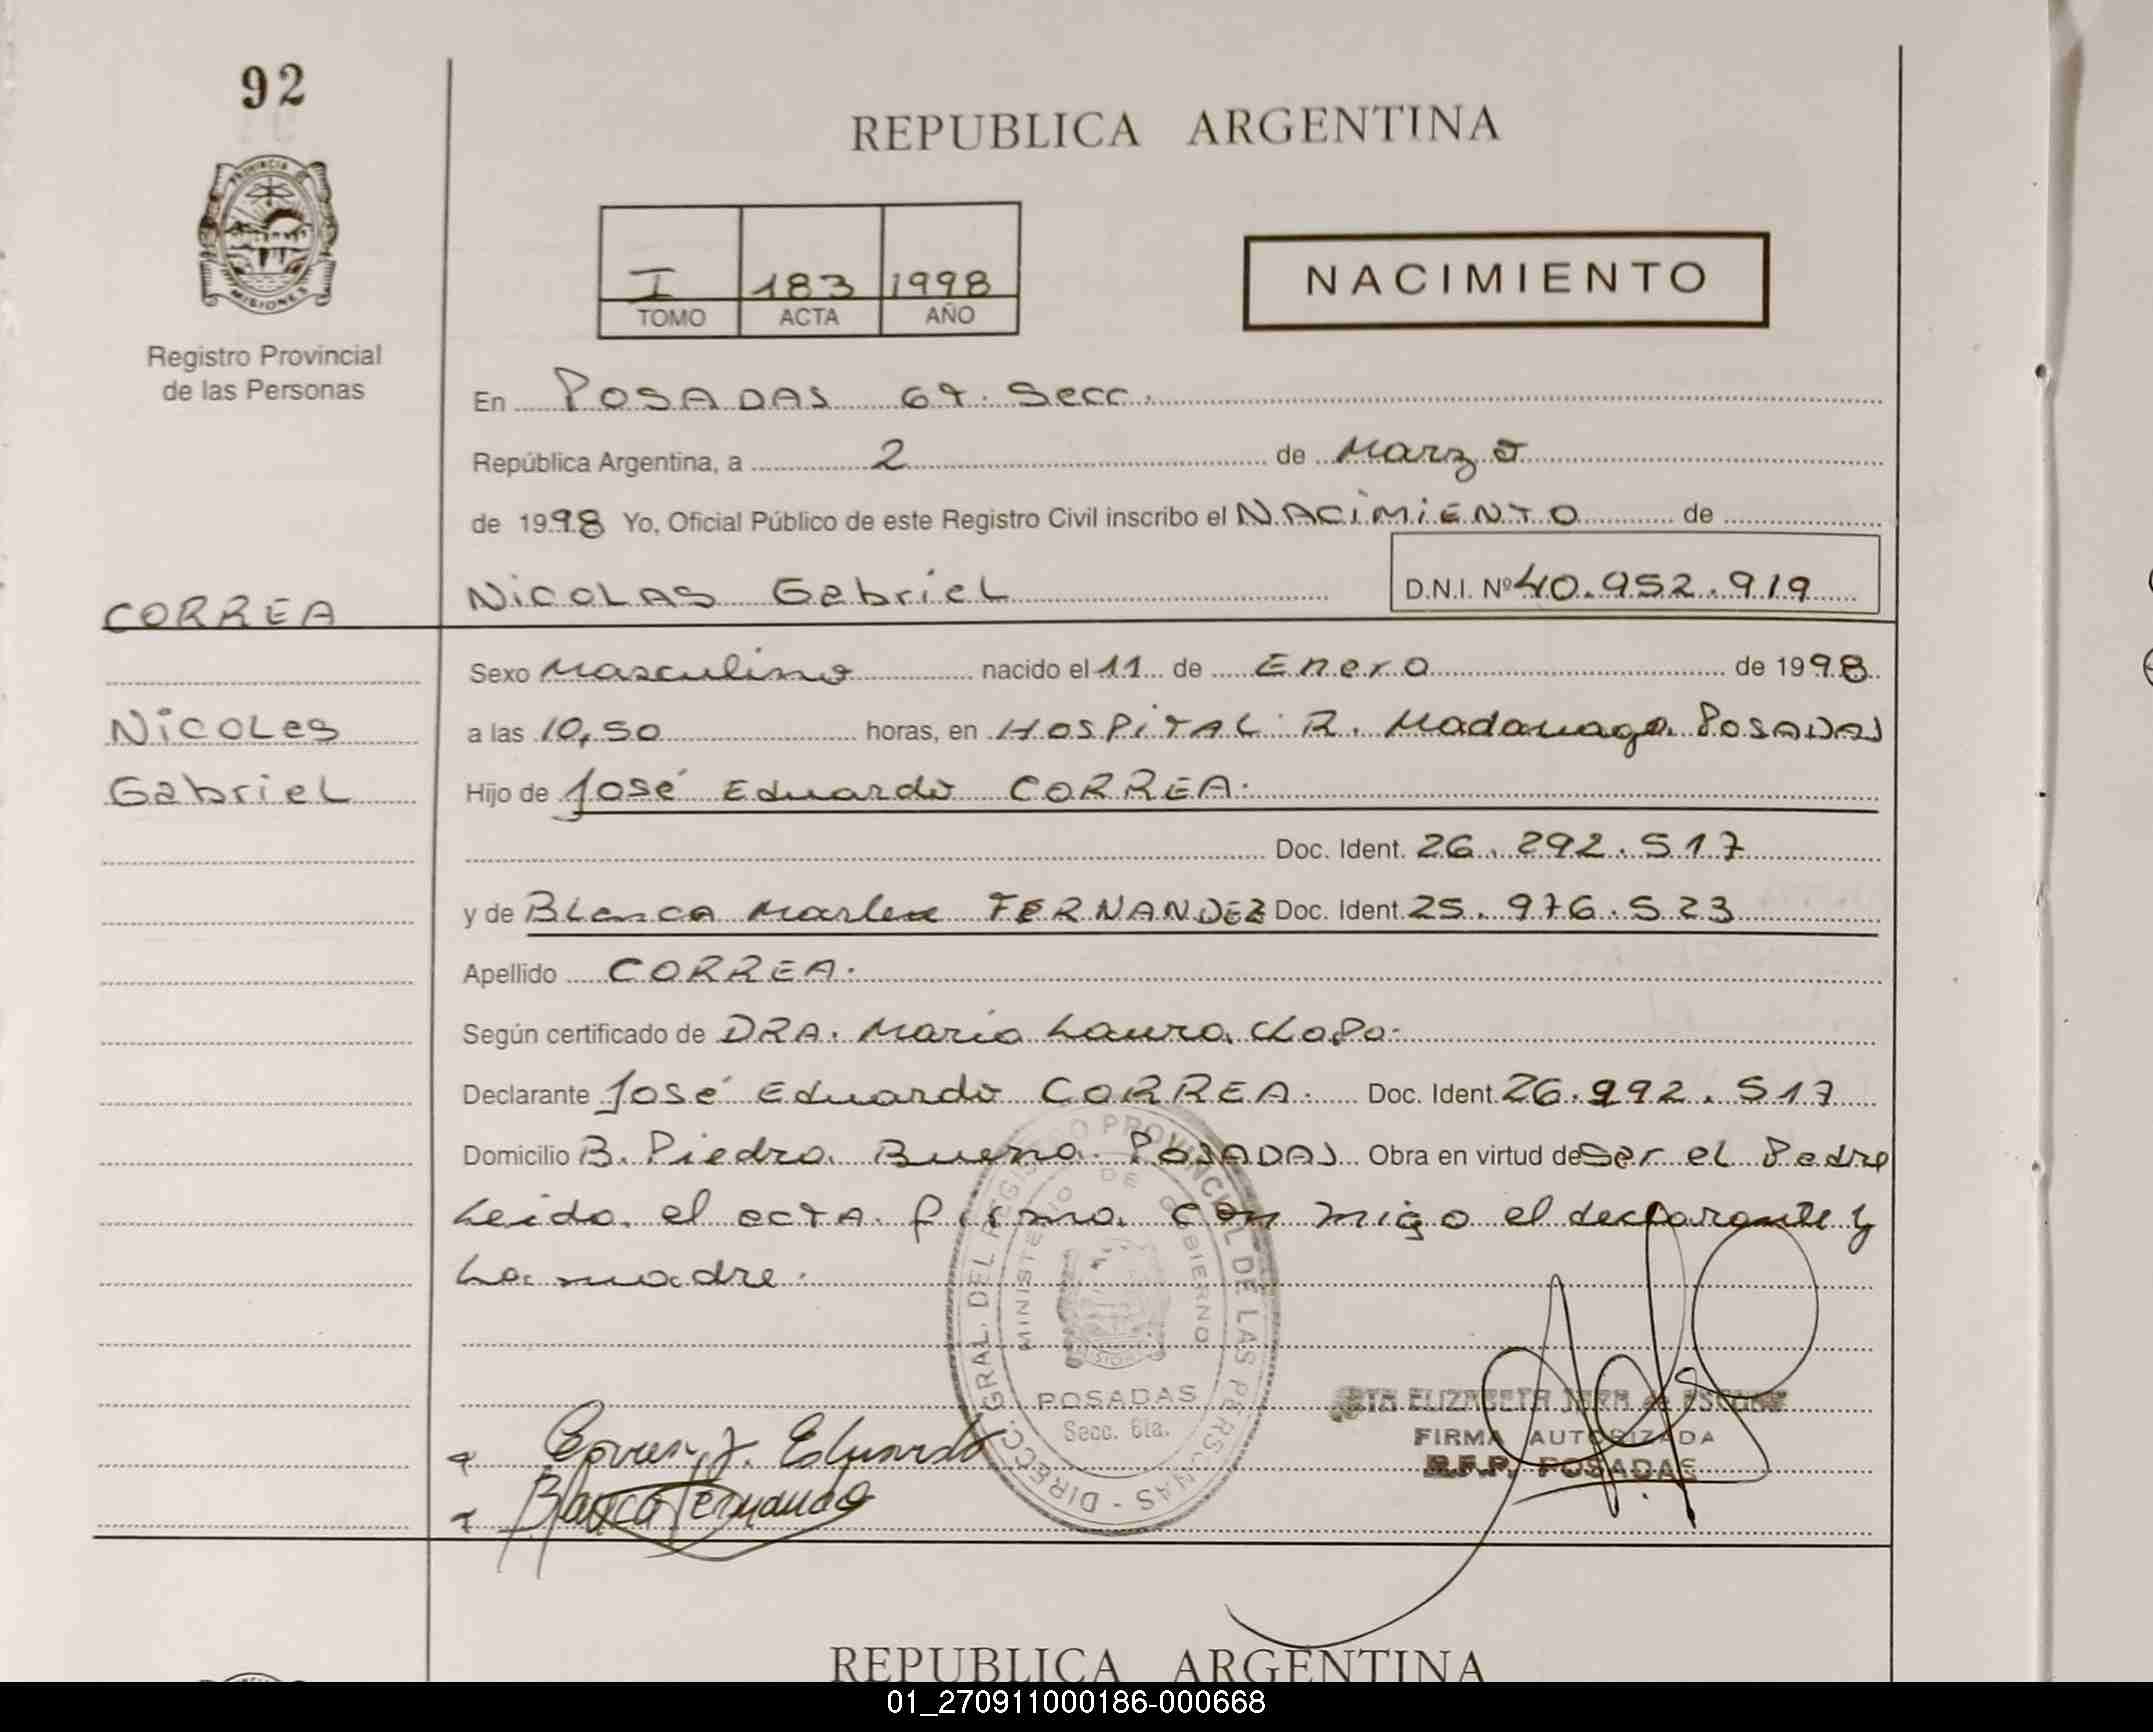 92
REPUBLICA ARGENTINA
PROVINCIA DE
MISIONES
I 183 1998
TOMO ACTA AÑO
NACIMIENTO
Registro Provincial
de las Personas
En POSADAS 6ª. Secc.
República Argentina, a 2 de Marzo
de 1998 Yo, Oficial Público de este Registro Civil inscribo el NACIMIENTO de
CORREA
NICOLAS Gabriel D.N.I. Nº 40.952.919
Sexo Masculino nacido el 11 de Enero de 1998
Nicolas
a las 10,50 horas, en HOSPITAL R. Madariaga. POSADAS
Gabriel
Hijo de José Eduardo CORREA.
Doc. Ident. 26.292.517
y de Blanca Marlene FERNANDEZ Doc. Ident. 25.976.523
Apellido CORREA.
Según certificado de DRA. Maria Laura
Declarante José Eduardo CORREA. Doc. Ident. 26.292.517
Domicilio B. Piedra Buena. POSADAS Obra en virtud de Ser el Padre
Leida el acta firma con migo el declarante y
La madre.
DIRECC. GRAL. DEL REGISTRO PROVINCIAL DE LAS PERSONAS -
MINISTERIO DE GOBIERNO
POSADAS
Secc. 6ta.
Correa, J. Eduardo
Blanca Fernandez
ELIZABETH
FIRMA AUTORIZADA
R.P.P. POSADAS
REPUBLICA ARGENTINA
01_270911000186-000668